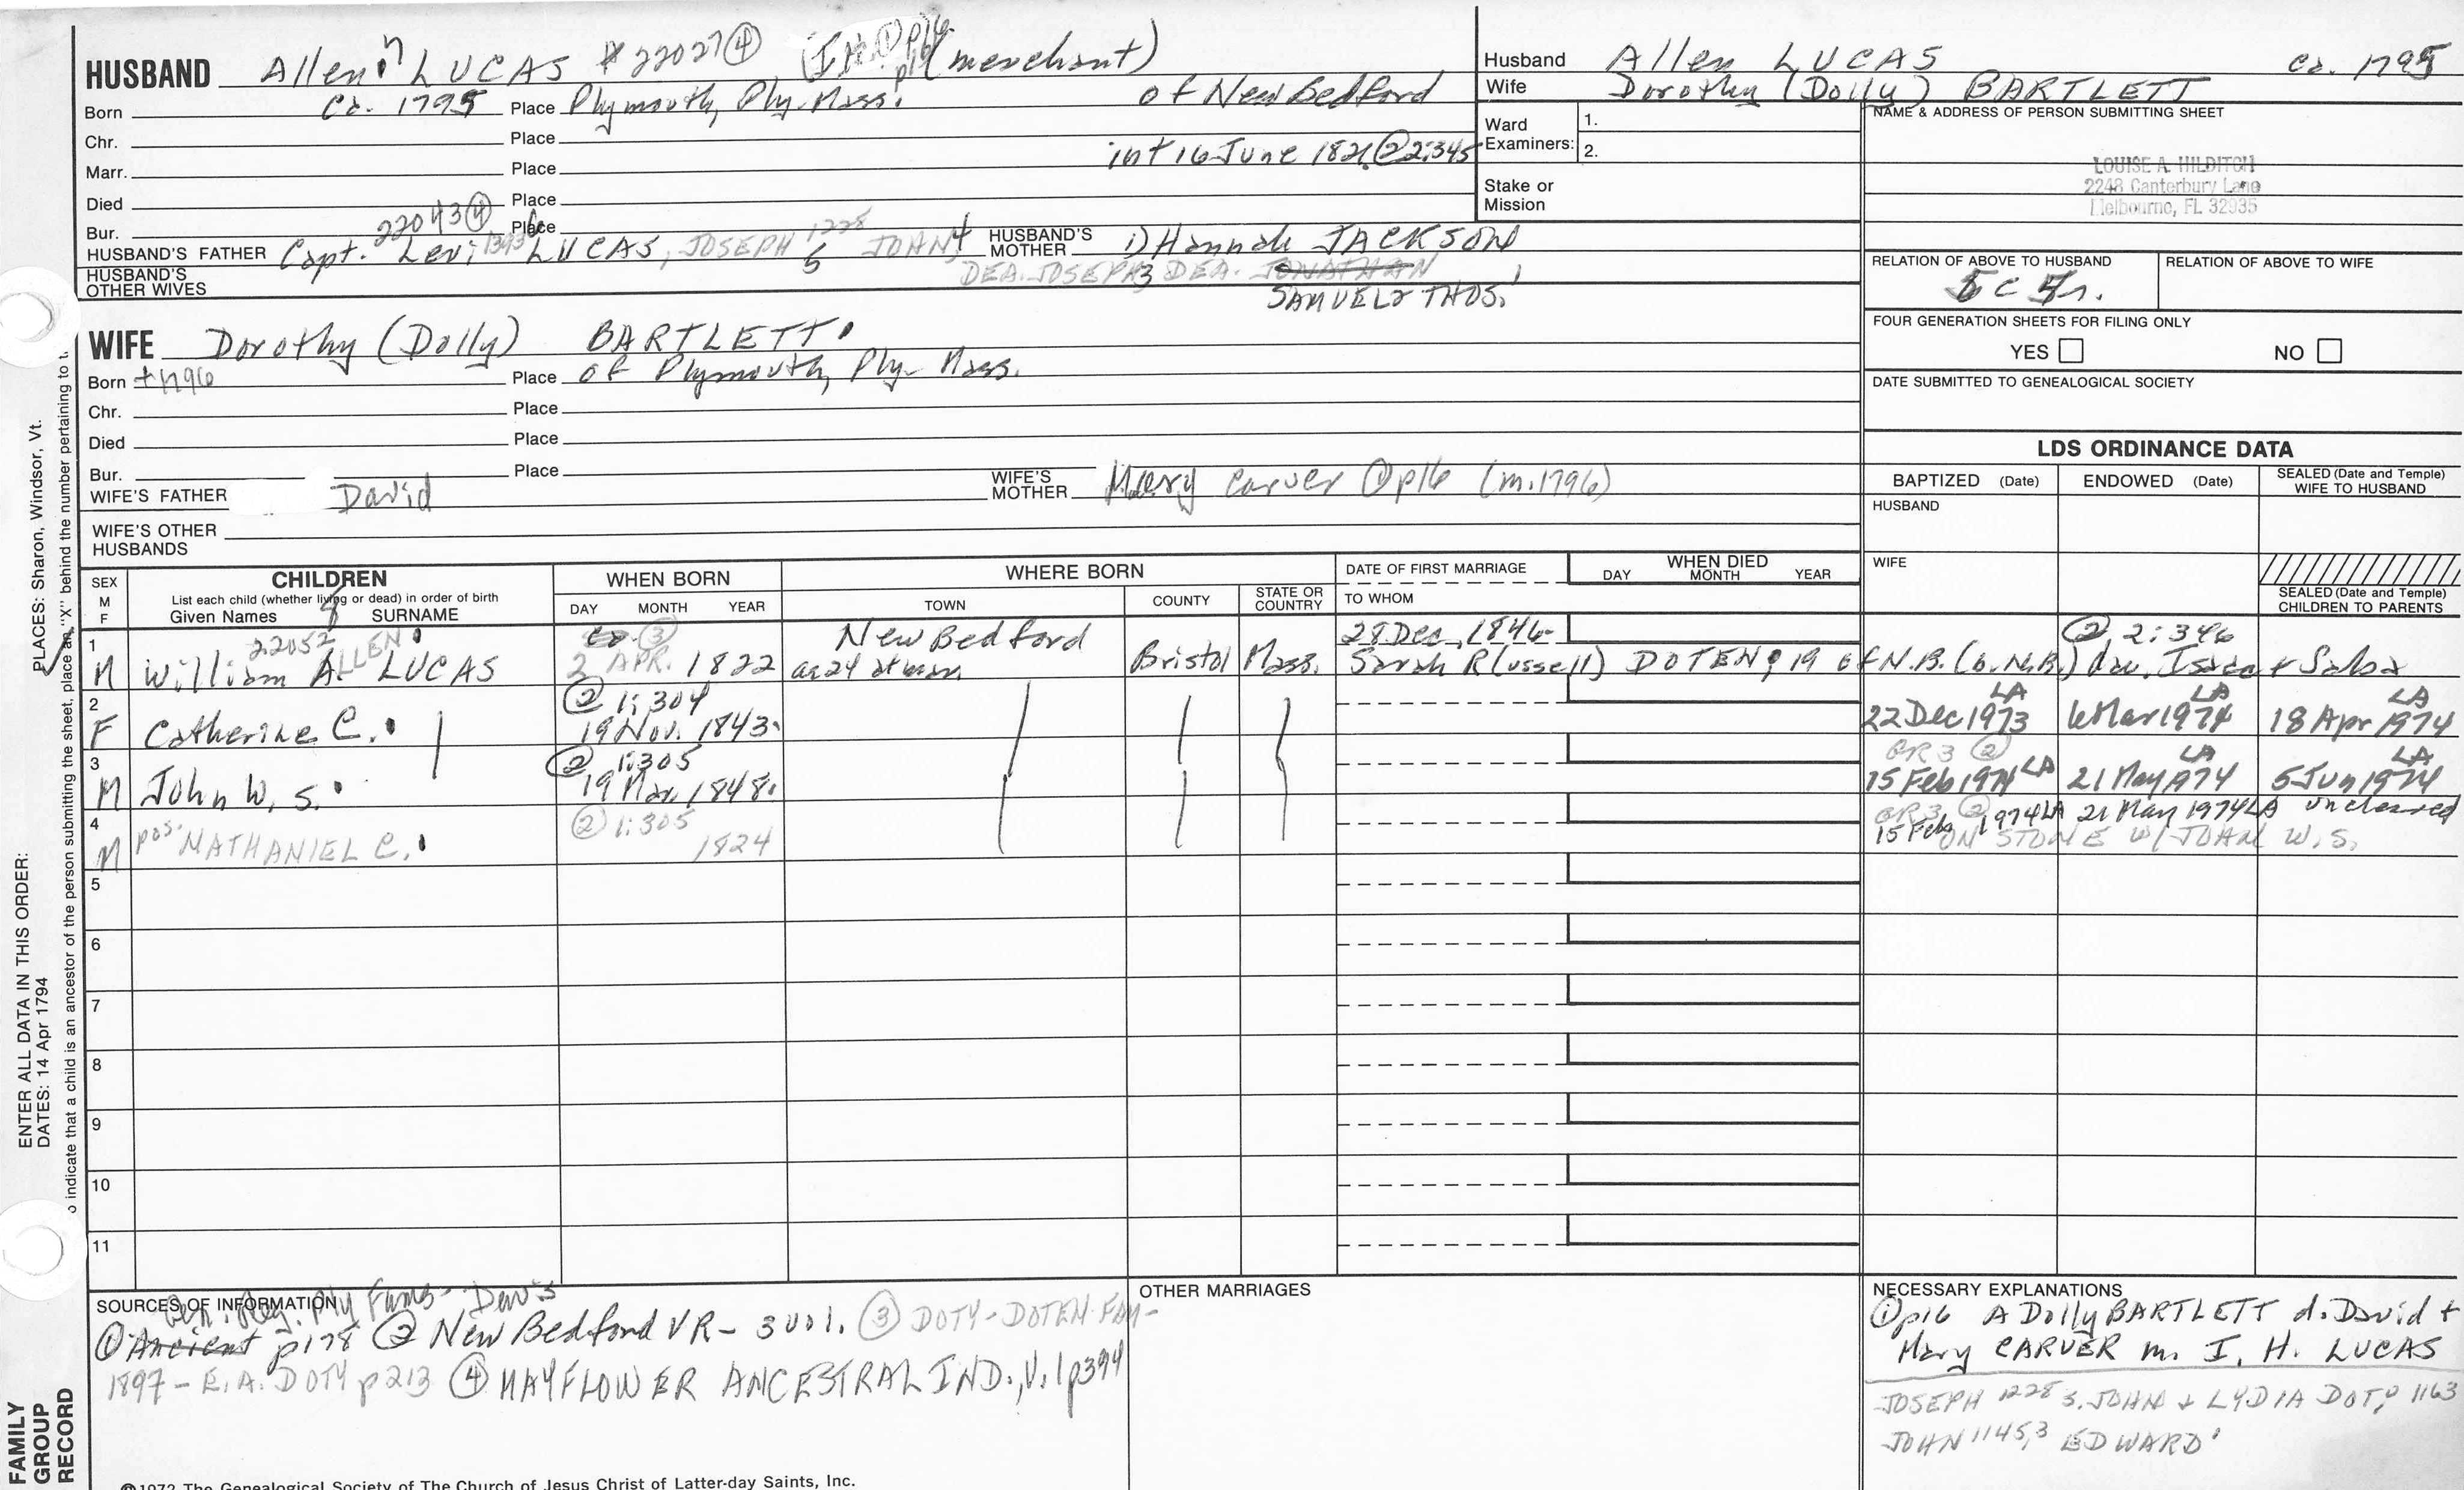 HUSBAND Allen 7 LUCAS # 22027 ④ (I.H. ① p16) (merchant)
Born Ca. 1795 Place Plymouth, Ply. Mass. of New Bedford
Chr. Place
Marr. Place int 16 June 1821 @ 2:345
Died Place
Bur. Place
22043 ④
HUSBAND'S FATHER Capt. Levi 6 LUCAS, JOSEPH 1228 5 JOHN 4 HUSBAND'S MOTHER 1) Hannah JACKSON
HUSBAND'S OTHER WIVES
DEA. JOSEPH 3 DEA. JONATHAN
SAMUEL 2 THOS. 1
WIFE Dorothy (Dolly) BARTLETT
Born +1796 Place of Plymouth, Ply. Mass.
Chr. Place
Died Place
Bur. Place
WIFE'S FATHER David WIFE'S MOTHER Mary Carver ① p16 (m. 1796)
WIFE'S OTHER HUSBANDS
Husband Allen LUCAS Ca. 1795
Wife Dorothy (Dolly) BARTLETT
Ward Examiners: 1.
2.
Stake or Mission
NAME & ADDRESS OF PERSON SUBMITTING SHEET
LOUISE A. HILDITCH
2248 Canterbury Lane
Melbourne, FL 32935
RELATION OF ABOVE TO HUSBAND RELATION OF ABOVE TO WIFE
FOUR GENERATION SHEETS FOR FILING ONLY
YES NO
DATE SUBMITTED TO GENEALOGICAL SOCIETY
LDS ORDINANCE DATA
BAPTIZED (Date) ENDOWED (Date) SEALED (Date and Temple) WIFE TO HUSBAND
HUSBAND
WIFE
SEALED (Date and Temple) CHILDREN TO PARENTS
SEX M F
CHILDREN
List each child (whether living or dead) in order of birth
Given Names SURNAME
WHEN BORN
DAY MONTH YEAR
WHERE BORN
TOWN COUNTY STATE OR COUNTRY
DATE OF FIRST MARRIAGE
TO WHOM
WHEN DIED
DAY MONTH YEAR
8
22052 ALLEN ③ New Bedford 28 Dec. 1846 ② 2:346
1 M William A. LUCAS 2 APR. 1822 ae 24 at marr. Bristol Mass. Sarah R(ussell) DOTEN, 19 of N.B. (b. N.B.) dau. Isaac + Saba
② 1:304 LA LA LA
2 F Catherine C. 19 Nov. 1843 22 Dec 1973 6 Mar 1974 18 Apr 1974
② 1:305 GR3 ② LA LA
3 M John W. S. 19 Mar. 1848 15 Feb 1974 LA 21 May 1974 5 Jun 1974
② 1:305 GR3 ② 15 Feb 1974 LA 21 May 1974 LA uncleared
4 M pos. NATHANIEL C. 1824 ON STONE W/ JOHN W. S.
5
6
7
8
9
10
11
SOURCES OF INFORMATION
Gen. Reg. Ply Fams - Davis
① Ancient p178 ② New Bedford VR - 3 vol. ③ DOTY-DOTEN FAM-
1897 - E.A. DOTY p213 ④ MAYFLOWER ANCESTRAL IND., V.1 p394
OTHER MARRIAGES
NECESSARY EXPLANATIONS
① p16 A Dolly BARTLETT d. David +
Mary CARVER m. I. H. LUCAS
JOSEPH 1228 s. JOHN + LYDIA DOTY 1163
JOHN 1145,3 EDWARD 1
©1972 The Genealogical Society of The Church of Jesus Christ of Latter-day Saints, Inc.
FAMILY GROUP RECORD
ENTER ALL DATA IN THIS ORDER:
DATES: 14 Apr 1794
PLACES: Sharon, Windsor, Vt.
o indicate that a child is an ancestor of the person submitting the sheet, place an "X" behind the number pertaining to t